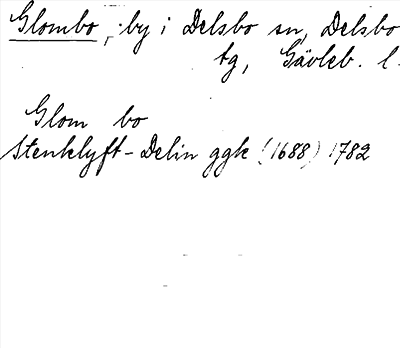 Glombo, by i Delsbo sn, Delsbo
tg, Gävleb. l.
Glom bo
Stenklyft-Delin ggk (1688) 1782